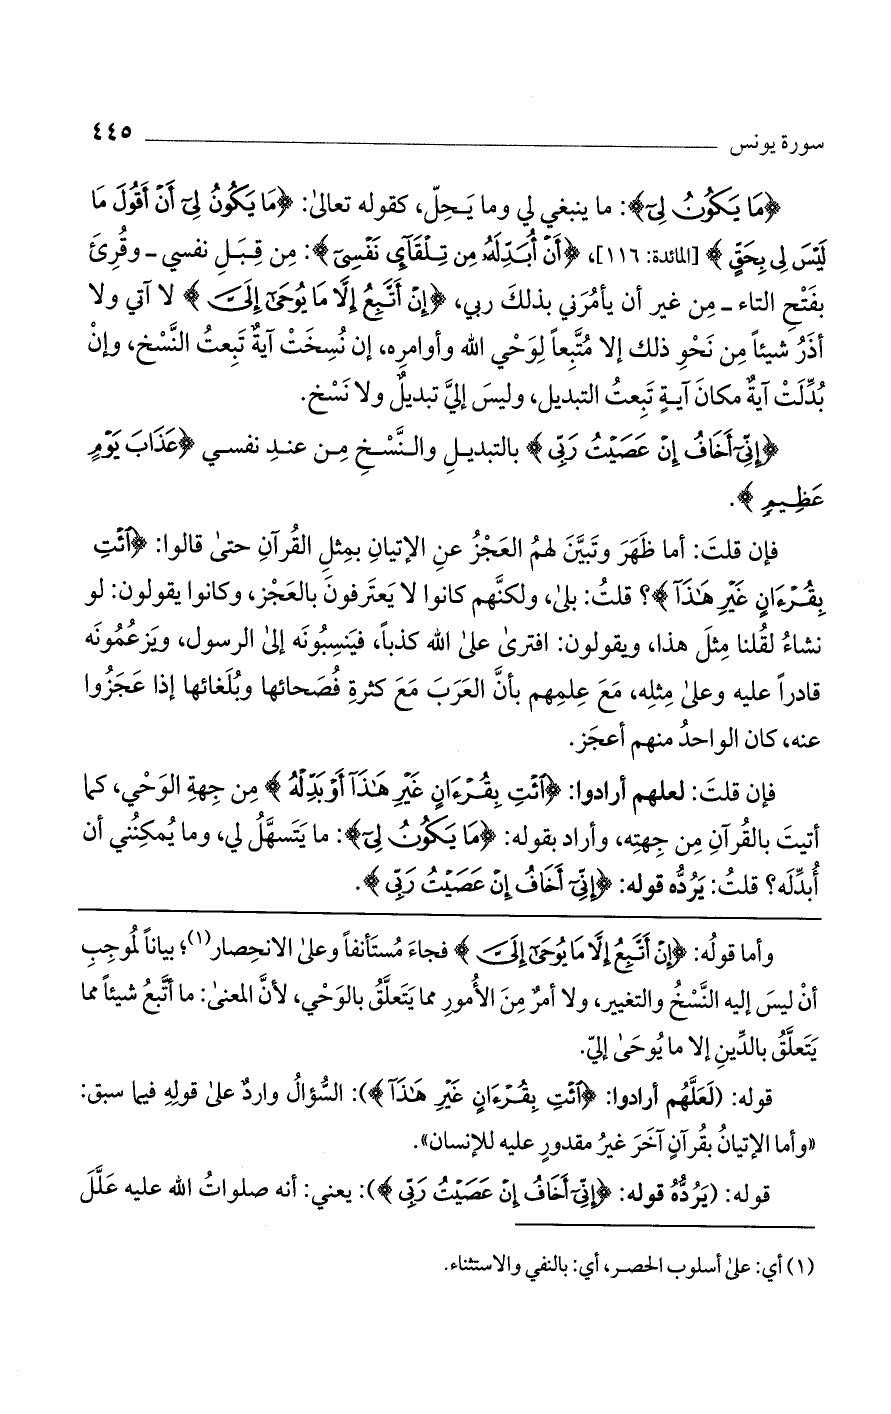 سورة يونس ٤٤٥
﴿مَا يَكُونُ لِيٓ﴾: ما ينبغي لي وما يَحِلّ، كقوله تعالىٰ: ﴿مَا يَكُونُ لِيٓ أَنۡ أَقُولَ مَا
لَيۡسَ لِي بِحَقٍّ﴾ [المائدة: ١١٦]، ﴿أَنۡ أُبَدِّلَهُۥ مِن تِلۡقَآيِٕ نَفۡسِيٓ﴾: مِن قِبَلِ نفسي ـ وقُرِئَ
بفَتْحِ التاء ـ مِن غير أن يأمُرَني بذلكَ ربي، ﴿إِنۡ أَتَّبِعُ إِلَّا مَا يُوحَىٰٓ إِلَيَّ﴾ لا آتي ولا
أذَرُ شيئاً مِن نَحْوِ ذلك إلا مُتَّبعاً لِوَحْي الله وأوامرِه، إن نُسِخَتْ آيةٌ تَبِعتُ النَّسْخ، وإنْ
بُدِّلَتْ آيةٌ مكانَ آيـةٍ تَبِعتُ التبديل، وليسَ إليَّ تبديلٌ ولا نَسْخ.
﴿إِنِّيٓ أَخَافُ إِنۡ عَصَيۡتُ رَبِّي﴾ بالتبديـلِ والنَّسْـخِ مِـن عنـدِ نفسـي ﴿عَذَابَ يَوۡمٍ
عَظِيمٖ﴾.
فإن قلتَ: أما ظَهَرَ وتَبيَّنَ لهمُ العَجْزُ عنِ الإتيانِ بمِثلِ القُرآنِ حتىٰ قالوا: ﴿ٱئۡتِ
بِقُرۡءَانٍ غَيۡرِ هَٰذَآ﴾؟ قلتُ: بلىٰ، ولكنَّهم كانوا لا يَعتَرفونَ بالعَجْز، وكانوا يقولون: لو
نشاءُ لقُلنا مِثلَ هذا، ويقولون: افترىٰ علىٰ الله كذباً، فيَنسِبُونَه إلىٰ الرسول، ويَزعُمُونَه
قادراً عليه وعلىٰ مِثلِه، مَعَ عِلمِهم بأنَّ العَرَبَ مَعَ كثرةِ فُصَحائها وبُلَغائها إذا عَجَزُوا
عنه، كان الواحدُ منهم أعجَز.
فإن قلتَ: لعلهم أرادوا: ﴿ٱئۡتِ بِقُرۡءَانٍ غَيۡرِ هَٰذَآ أَوۡ بَدِّلۡهُ﴾ مِن جِهةِ الوَحْي، كما
أتيتَ بالقُرآنِ مِن جِهتِه، وأراد بقوله: ﴿مَا يَكُونُ لِيٓ﴾: ما يَتَسهَّلُ لي، وما يُمكِنُني أن
أُبدِّلَه؟ قلتُ: يَرُدُّه قوله: ﴿إِنِّيٓ أَخَافُ إِنۡ عَصَيۡتُ رَبِّي﴾.
وأما قولُه: ﴿إِنۡ أَتَّبِعُ إِلَّا مَا يُوحَىٰٓ إِلَيَّ﴾ فجاءَ مُستَأنفاً وعلىٰ الانحِصار(١)؛ بياناً لمُوجِبِ
أنْ ليسَ إليه النَّسْخُ والتغيير، ولا أمرٌ مِنَ الأُمورِ مما يَتَعلَّقُ بالوَحْي، لأنَّ المعنىٰ: ما أتَّبعُ شيئاً مما
يَتَعلَّقُ بالدِّينِ إلا ما يُوحَىٰ إليّ.
قوله: (لَعَلَّهُم أرادوا: ﴿ٱئۡتِ بِقُرۡءَانٍ غَيۡرِ هَٰذَآ﴾): السُّؤالُ واردٌ علىٰ قولِهِ فيما سبق:
«وأما الإتيانُ بقُرآنٍ آخَرَ غيرُ مقدورٍ عليه للإنسان».
قوله: (يَرُدُّهُ قوله: ﴿إِنِّيٓ أَخَافُ إِنۡ عَصَيۡتُ رَبِّي﴾): يعني: أنه صلواتُ الله عليه عَلَّلَ
(١) أي: علىٰ أسلوب الحصر، أي: بالنفي والاستثناء.